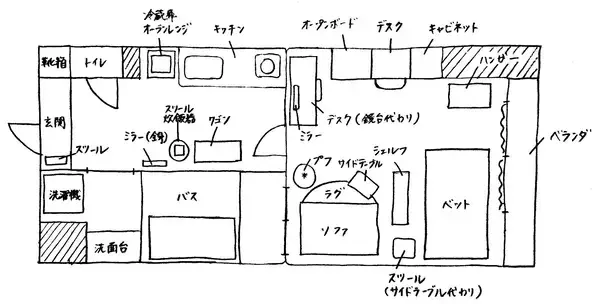 冷蔵庫
オーブンレンジ
キッチン
オープンボード
デスク
キャビネット
靴箱
トイレ
ハンガー
玄関
スツール
炊飯器
ワゴン
ミラー(全身)
スツール
デスク(鏡台代わり)
ミラー
ベランダ
プフ
サイドテーブル
シェルフ
ラグ
洗濯機
バス
ソファ
ベット
洗面台
スツール
(サイドテーブル代わり)